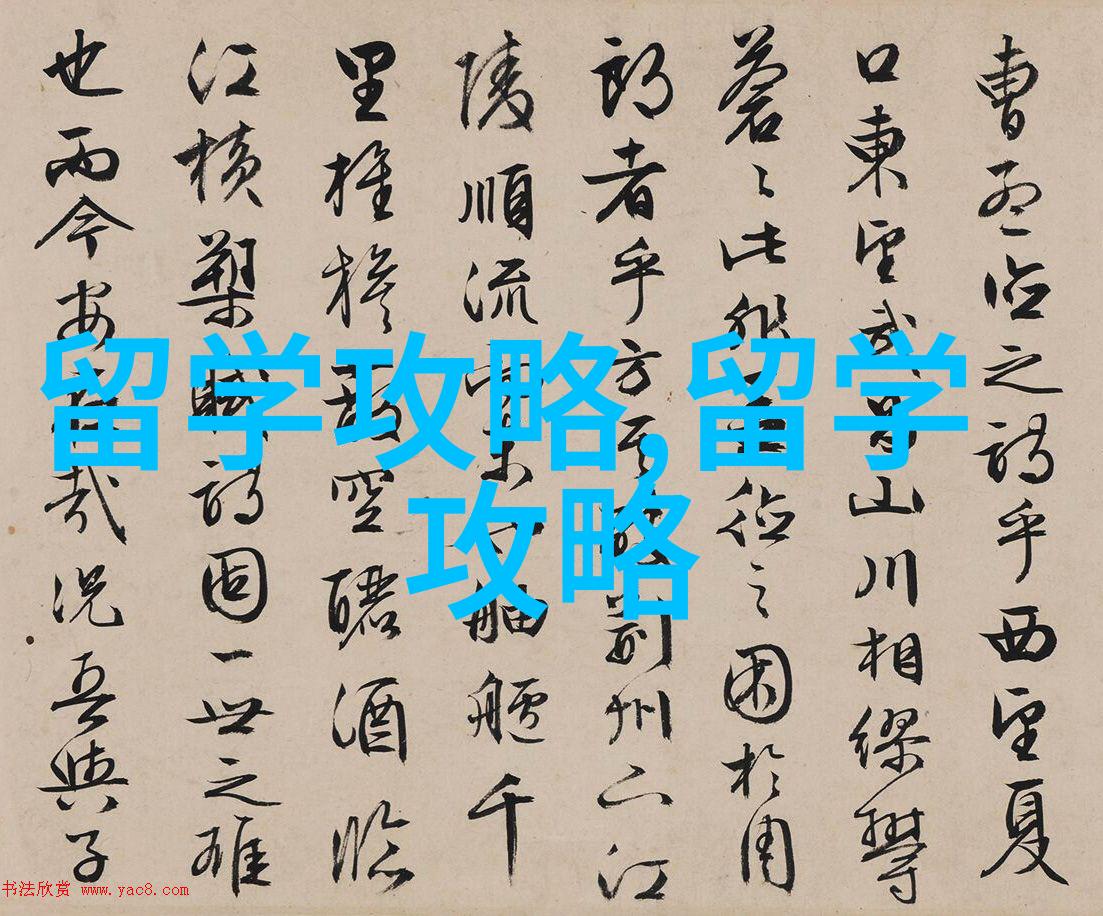 留学攻略,留学
攻略
曹孟德之詩乎西望夏
口東望武昌山川相繆欝
蒼〻此非孟德之困於周
郎者乎方其破荆州下江
陵順流而東也舳艫千
里旌旗蔽空釃酒臨
江横槊賦詩固一世之雄
也而今安在哉况吾與子
书法欣赏 www.yac8.com